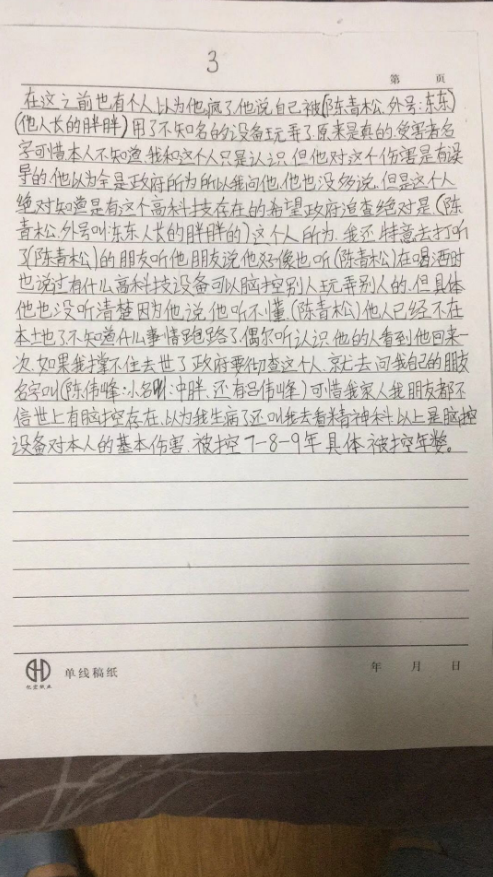 3
第 页
在这之前也有个人以为他疯了他说自己被(陈青松.外号:东东)
(他人长的胖胖)用了不知名的设备玩弄了原来是真的.受害者名
字可惜本人不知道.我和这个人只是认识.但他对这个伤害是有误
导的.他以为全是政府所为所以我问他.他也没多说。但是这个人
绝对知道是有这个高科技存在的希望政府追查绝对是(陈
青松.外号叫:东东人长的胖胖的)这个人所为.我还特意去打听
了(陈青松)的朋友听他朋友说他好像也听(陈青松)在喝酒时
也说过有什么高科技设备可以脑控别人玩弄别人的.但具体
他也没听清楚因为他说他听不懂(陈青松)他人已经不在
本地了不知道什么事情跑路了偶尔听认识他的人看到他回来一
次.如果我撑不住去世了政府要彻查这个人.就去问我自己的朋友
名字叫(陈伟峰:小名叫:中胖.还有吕伟峰)可惜我家人我朋友都不
信世上有脑控存在.以为我生病了还叫我去看精神科.以上是脑控
设备对本人的基本伤害.被控7-8-9年具体被控年数。
单线稿纸
年 月 日